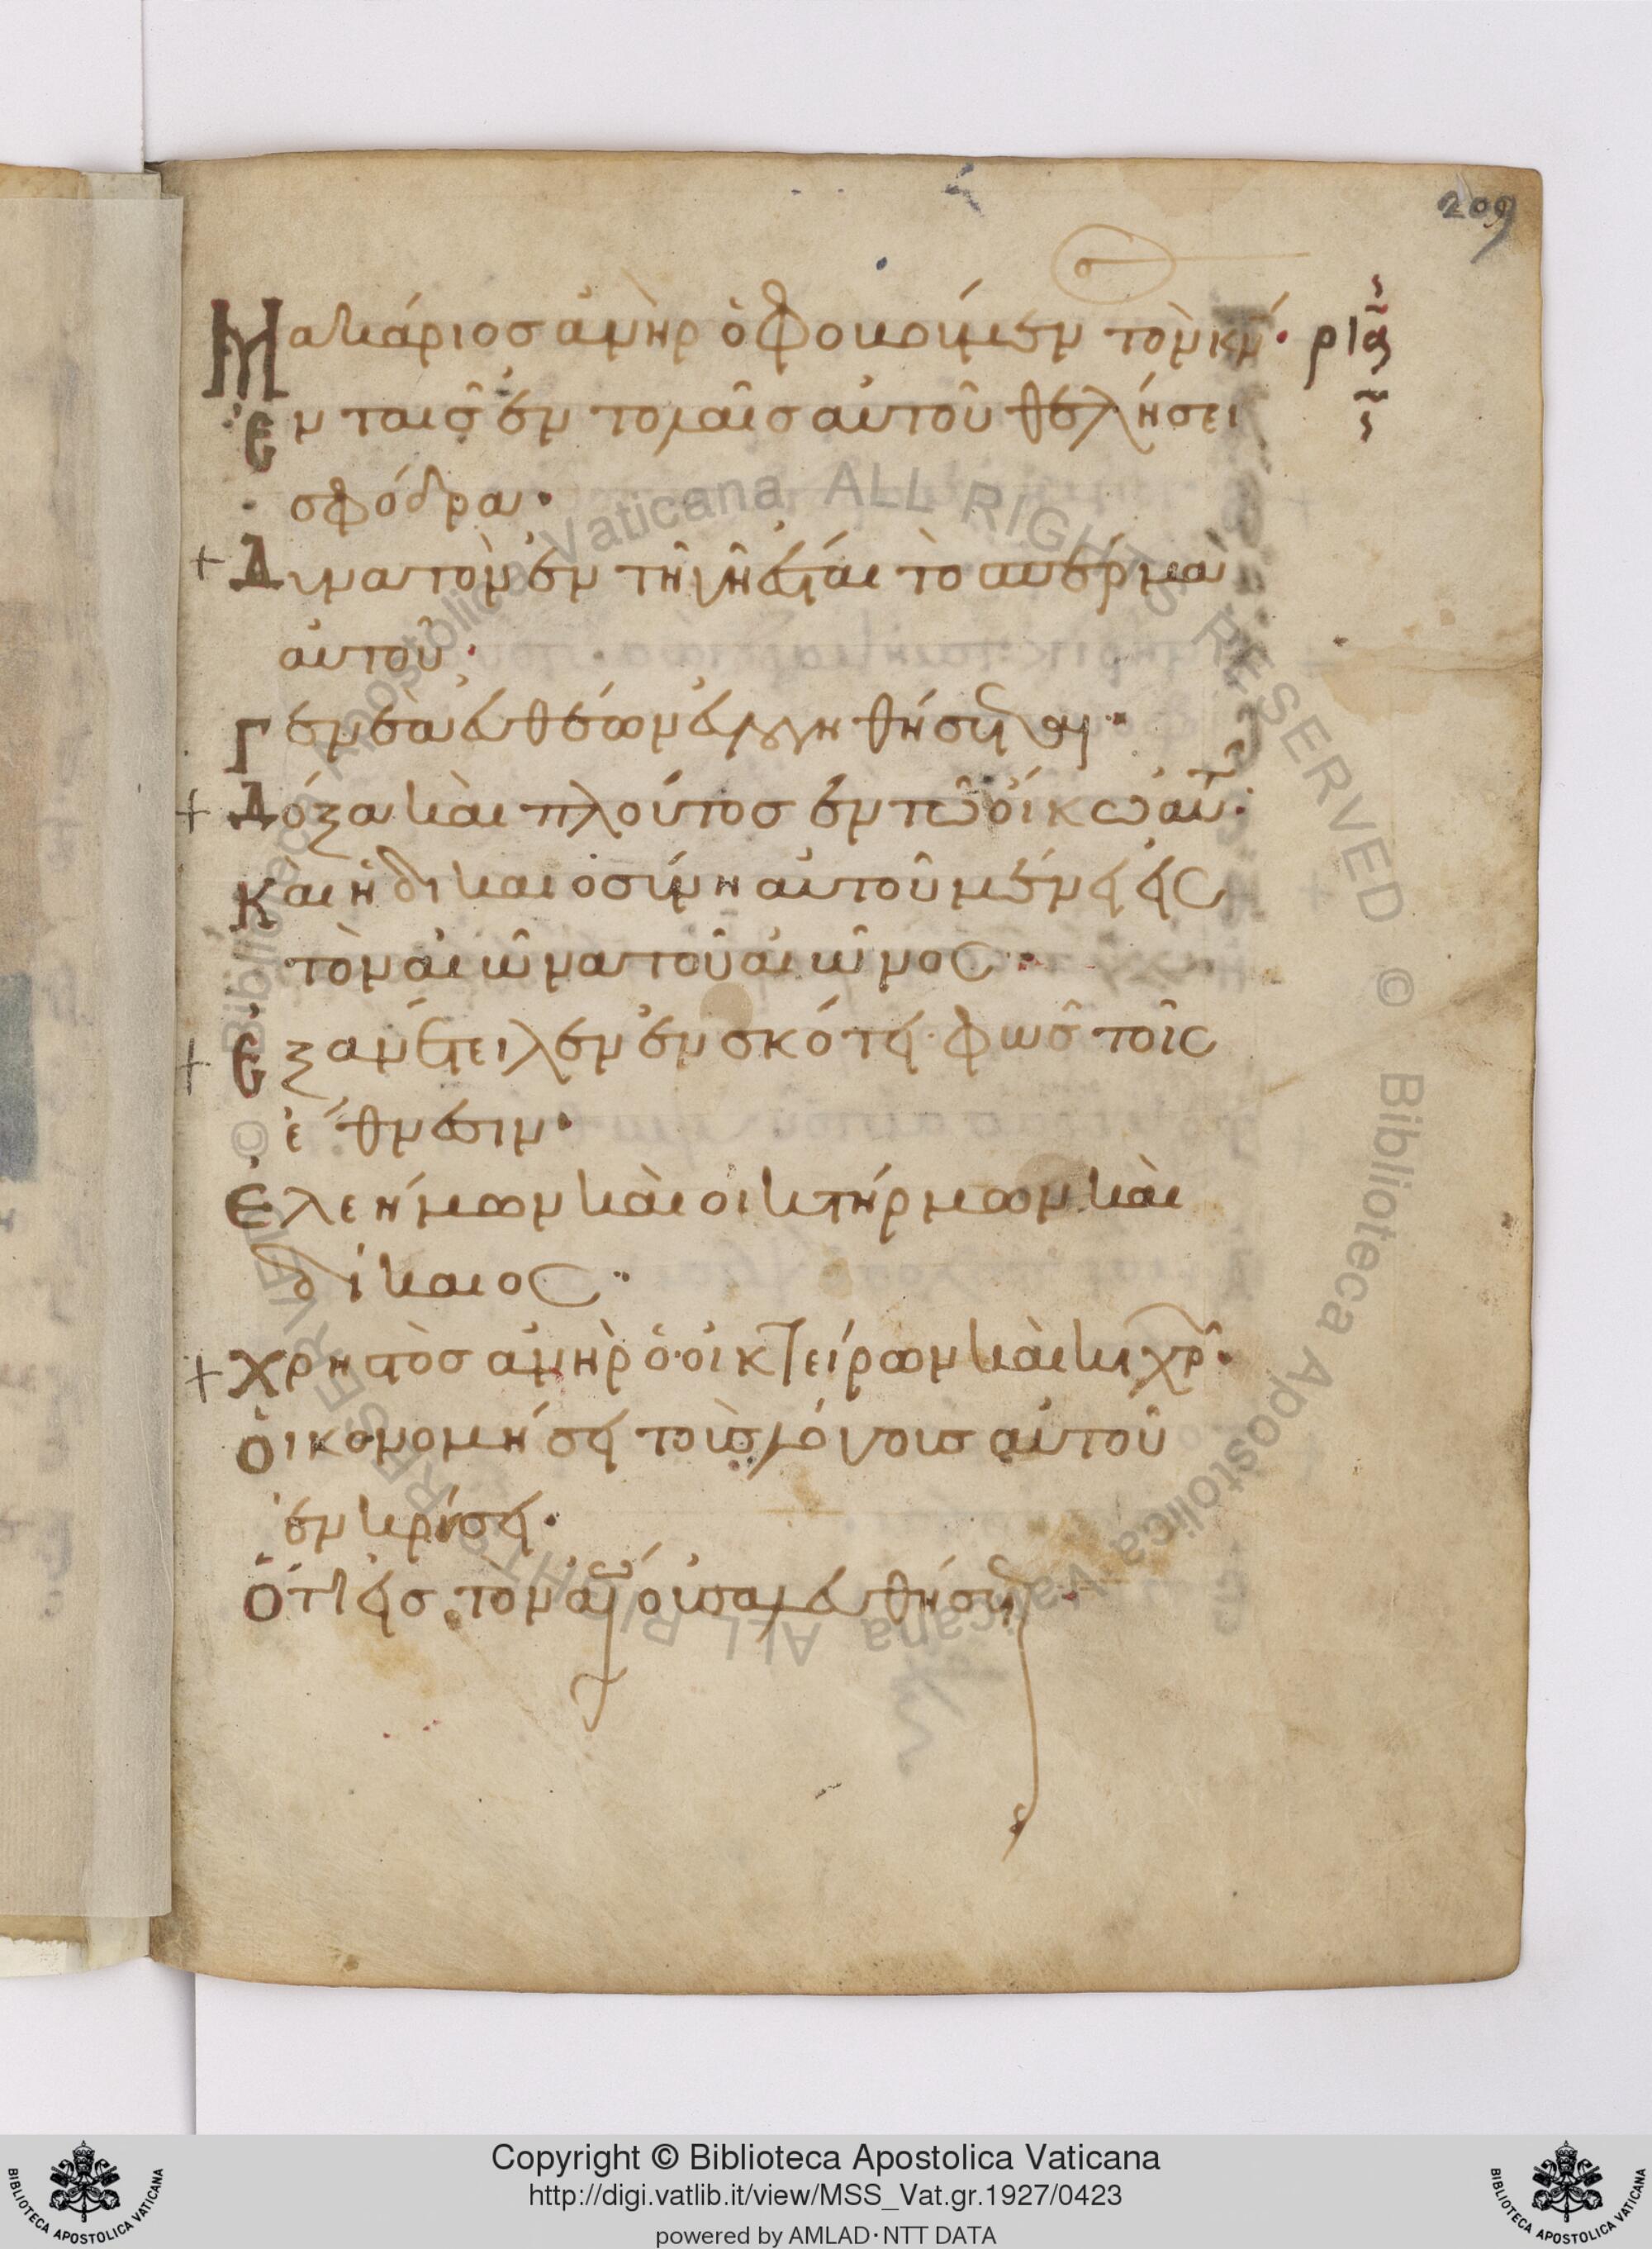 209
Μακάριος ἀνὴρ ὁ φοβούμενος τὸν κν· ρια
Ἐν ταῖς ἐντολαῖς αὐτοῦ θελήσει
σφόδρα·
+ Δυνατὸν ἐν τῇ γῇ ἔσται τὸ σπέρμα
αὐτοῦ·
Γενεὰ εὐθέων εὐλογηθήσεται·
+ Δόξα καὶ πλοῦτος ἐν τῷ οἴκῳ αὐτ·
Καὶ ἡ δικαιοσύνη αὐτοῦ μένει εἰς
τὸν αἰῶνα τοῦ αἰῶνος·
+ Ἐξανέτειλεν ἐν σκότει φῶς τοῖς
εὐθέσιν·
Ἐλεήμων καὶ οἰκτήρμων καὶ
δίκαιος·
+ Χρηστὸς ἀνὴρ ὁ οἰκτείρων καὶ κιχρ·
Οἰκονομήσει τοὺς λόγους αὐτοῦ
ἐν κρίσει·
Ὅτι εἰς τὸν αἰῶνα οὐ σαλευθήσεται·
Copyright © Biblioteca Apostolica Vaticana
http://digi.vatlib.it/view/MSS_Vat.gr.1927/0423
powered by AMLAD·NTT DATA
BIBLIOTECA APOSTOLICA VATICANA
BIBLIOTECA APOSTOLICA VATICANA
© Biblioteca Apostolica Vaticana ALL RIGHTS RESERVED © Biblioteca Apostolica Vaticana ALL RIGHTS RESERVED